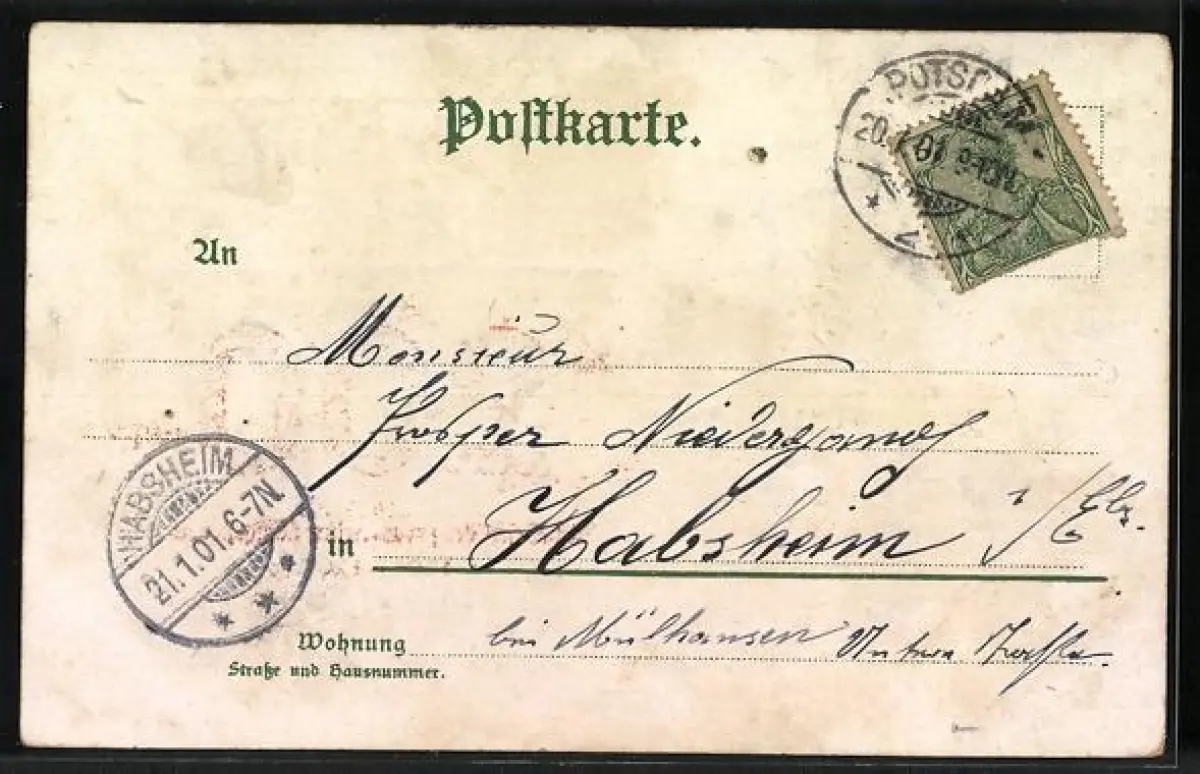 Postkarte.
POTSDAM
20. 1. 01
9-10N.
1
An
Monsieur
Prosper Niedergang
HABSHEIM
21.1.01.6-7N.
in Habsheim i/Els.
Wohnung bei Mülhausen
Straße und Hausnummer.